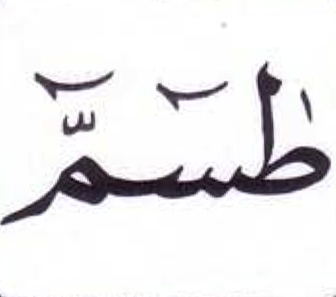 طٰسٓمّٓ